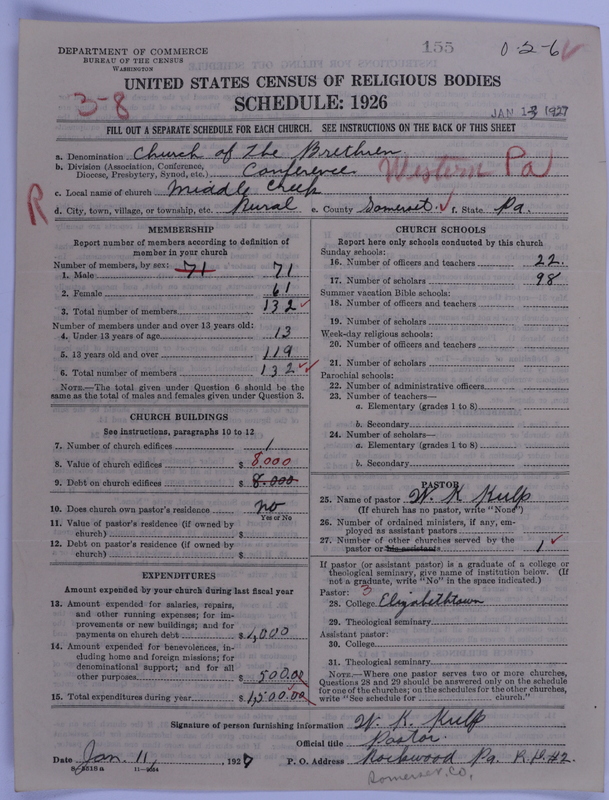 DEPARTMENT OF COMMERCE
BUREAU OF THE CENSUS
WASHINGTON
155
0-2-6
UNITED STATES CENSUS OF RELIGIOUS BODIES
3-8
SCHEDULE: 1926
JAN 13 1927
FILL OUT A SEPARATE SCHEDULE FOR EACH CHURCH. SEE INSTRUCTIONS ON THE BACK OF THIS SHEET
a. Denomination Church of the Brethren
b. Division (Association, Conference, Diocese, Presbytery, Synod, etc.) Conference
Western Pa
c. Local name of church Middle Creek
R
d. City, town, village, or township, etc. Rural e. County Somerset f. State Pa.
MEMBERSHIP
Report number of members according to definition of
member in your church
Number of members, by sex:
1. Male 71 71
2. Female 61
3. Total number of members 132
Number of members under and over 13 years old:
4. Under 13 years of age 13
5. 13 years old and over 119
6. Total number of members 132
NOTE.—The total given under Question 6 should be the
same as the total of males and females given under Question 3.
CHURCH BUILDINGS
See instructions, paragraphs 10 to 12
7. Number of church edifices 1
8. Value of church edifices $ 8,000
9. Debt on church edifices $ 8.000
10. Does church own pastor's residence no
Yes or No
11. Value of pastor's residence (if owned by
church) $
12. Debt on pastor's residence (if owned by
church) $
EXPENDITURES
Amount expended by your church during last fiscal year
13. Amount expended for salaries, repairs,
and other running expenses; for im-
provements or new buildings; and for
payments on church debt $ 1,000
14. Amount expended for benevolences, in-
cluding home and foreign missions; for
denominational support; and for all
other purposes $ 500.00
15. Total expenditures during year $ 1,500.00
CHURCH SCHOOLS
Report here only schools conducted by this church
Sunday schools:
16. Number of officers and teachers 22.
17. Number of scholars 98
Summer vacation Bible schools:
18. Number of officers and teachers
19. Number of scholars
Week-day religious schools:
20. Number of officers and teachers
21. Number of scholars
Parochial schools:
22. Number of administrative officers
23. Number of teachers—
a. Elementary (grades 1 to 8)
b. Secondary
24. Number of scholars—
a. Elementary (grades 1 to 8)
b. Secondary
PASTOR
25. Name of pastor W. K. Kulp
(If church has no pastor, write "None")
26. Number of ordained ministers, if any, em-
ployed as assistant pastors
27. Number of other churches served by the
pastor or his assistants 1
If pastor (or assistant pastor) is a graduate of a college or
theological seminary, give name of institution below. (If
not a graduate, write "No" in the space indicated.)
Pastor: 3
28. College Elizabethtown
29. Theological seminary
Assistant pastor:
30. College
31. Theological seminary
NOTE.—Where one pastor serves two or more churches,
Questions 28 and 29 should be answered only on the schedule
for one of the churches; on the schedules for the other churches,
write "See schedule for church."
Signature of person furnishing information W. K. Kulp
Official title Pastor
Date Jan. 11, 1927 P. O. Address Rockwood Pa. R.D.#2.
8—5518a 11—9264
Somerset, Co.